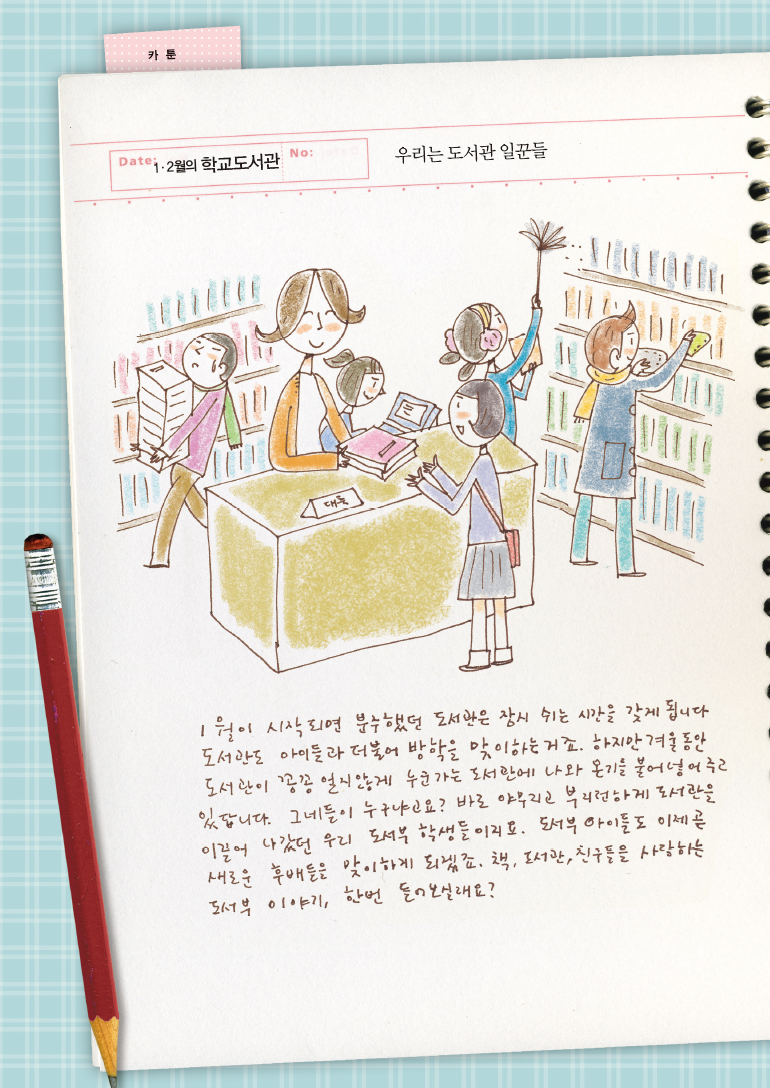 카 툰
Date: 1·2월의 학교도서관 No:
우리는 도서관 일꾼들
대출
1월이 시작되면 분주했던 도서관은 잠시 쉬는 시간을 갖게 됩니다
도서관도 아이들과 더불어 방학을 맞이하는거죠. 하지만 겨울동안
도서관이 꽁꽁 얼지않게 누군가는 도서관에 나와 온기를 불어넣어주고
있답니다. 그네들이 누구냐고요? 바로 야무지고 부지런하게 도서관을
이끌어 나갔던 우리 도서부 학생들이지요. 도서부 아이들도 이제 곧
새로운 후배들을 맞이하게 되겠죠. 책, 도서관, 친구들을 사랑하는
도서부 이야기, 한번 들어보실래요?